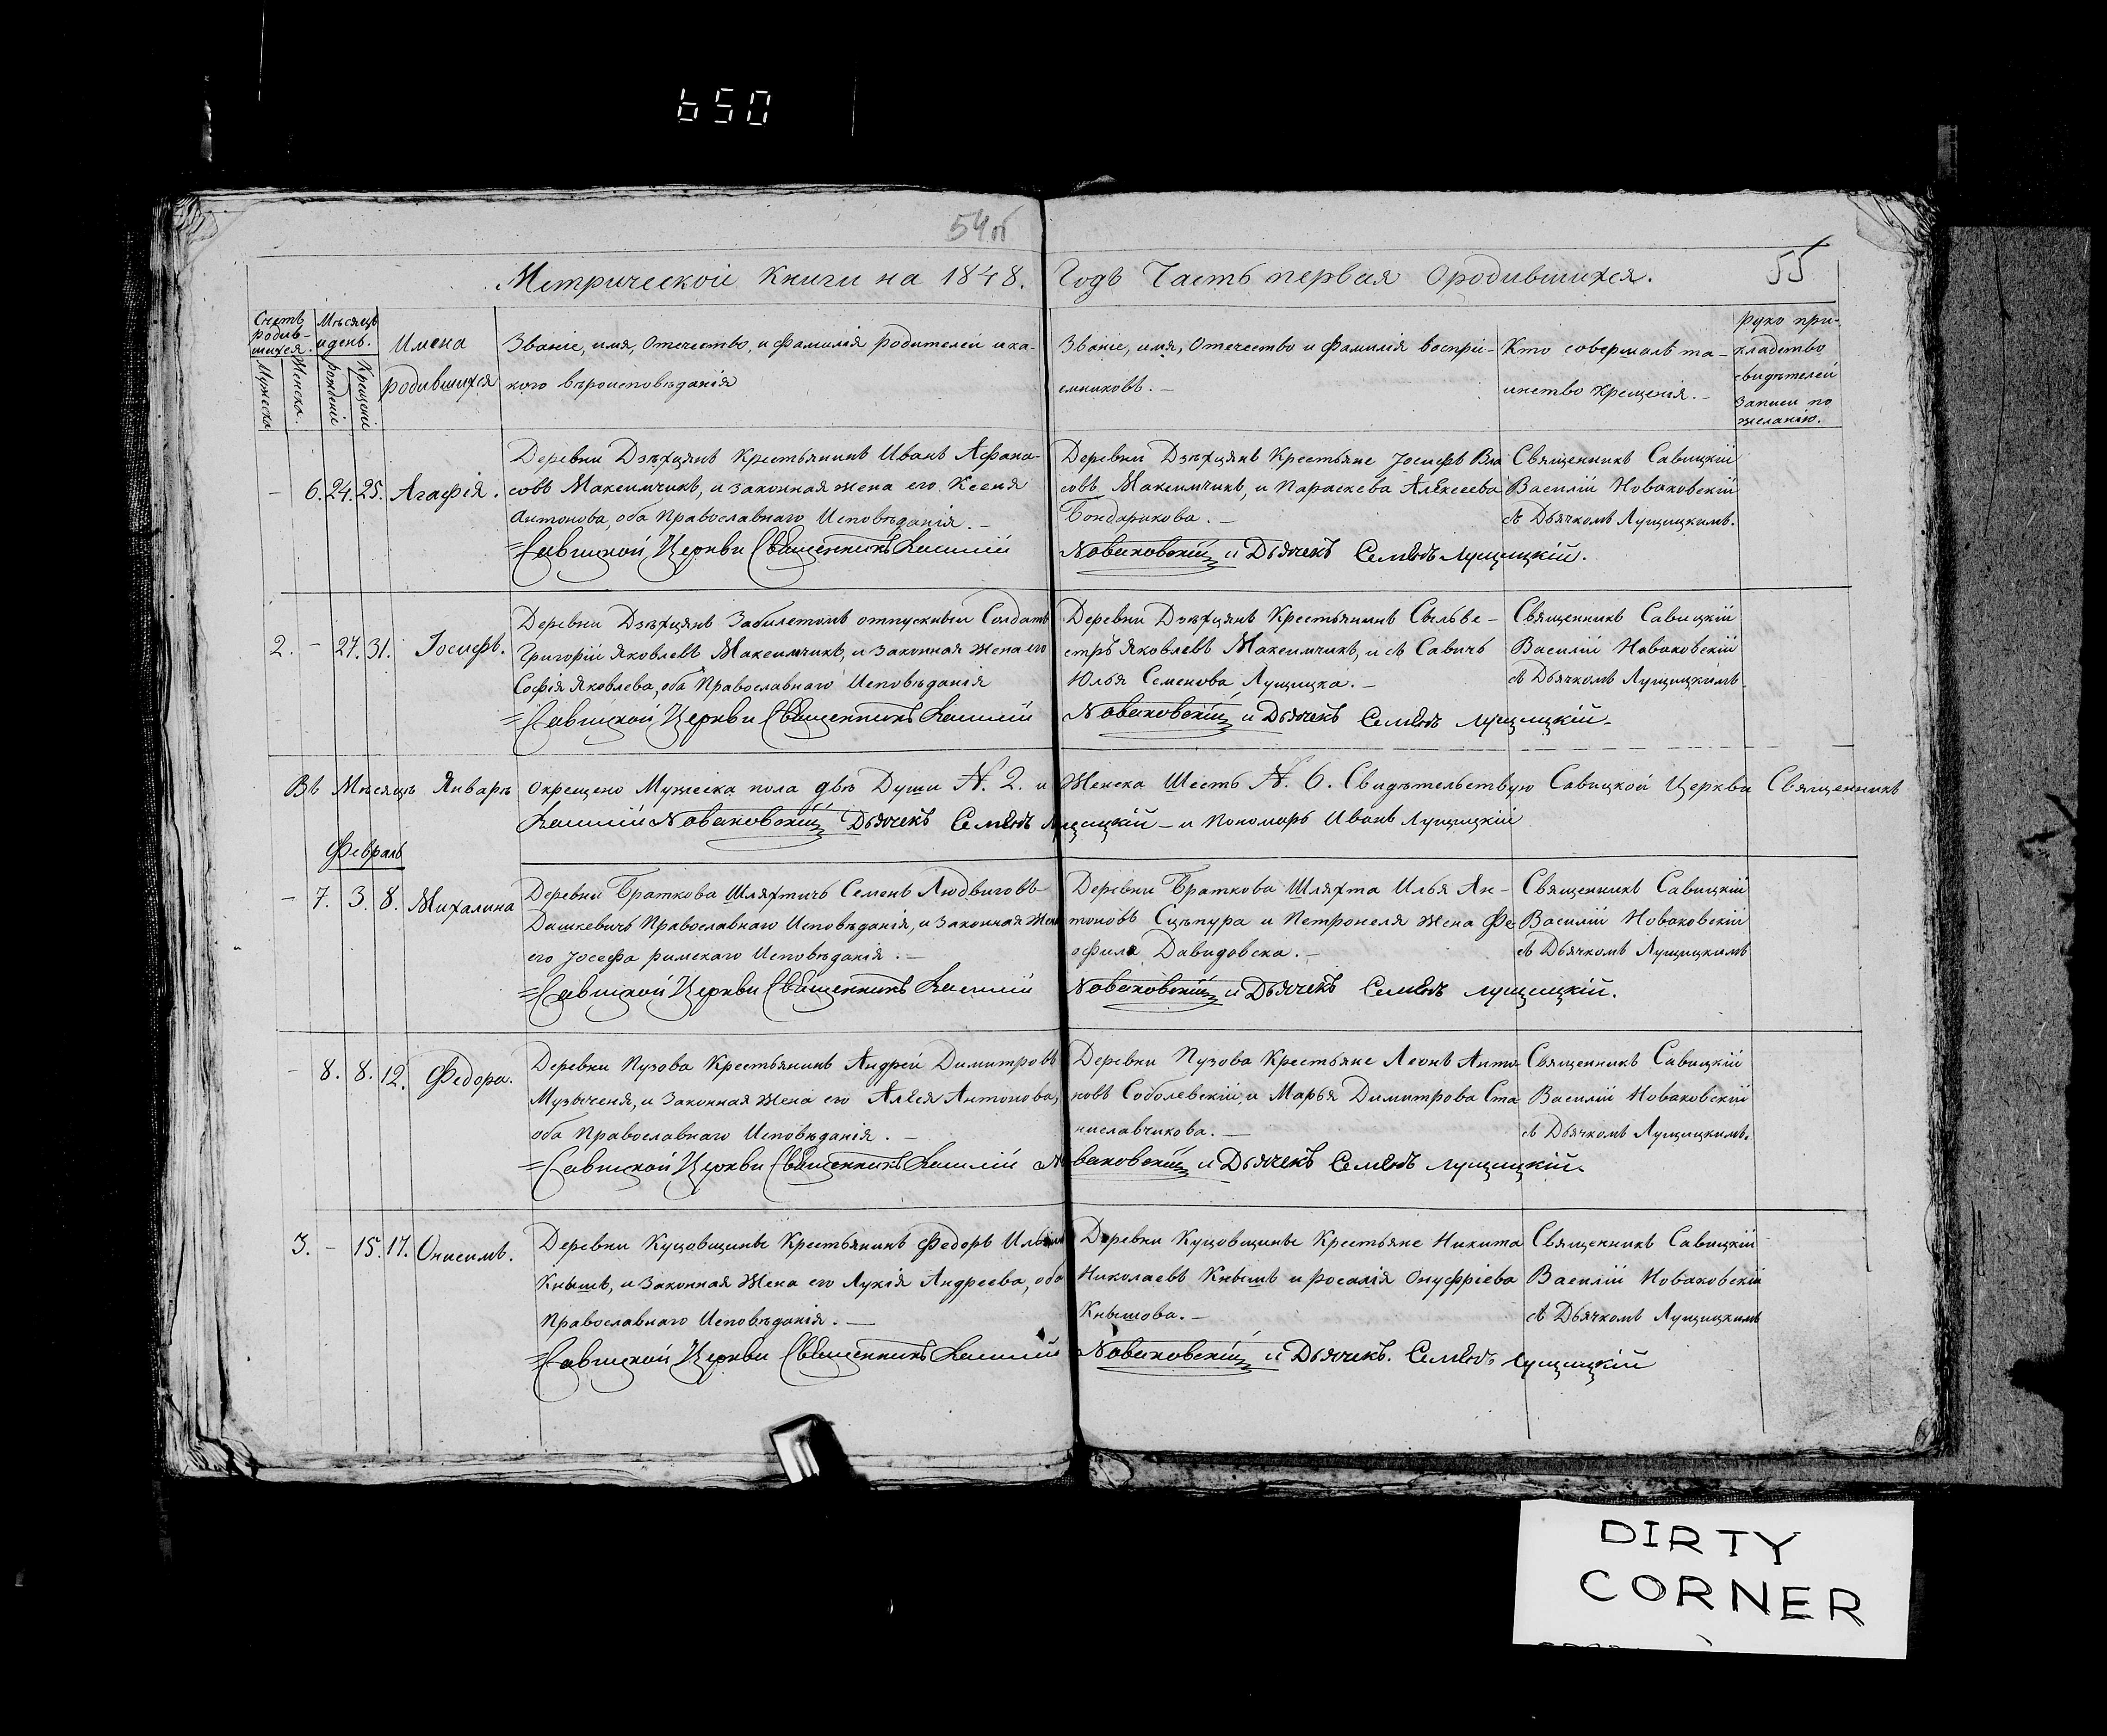 650
54об
55
Метрической Книги на 1848. Годъ Часть первая Ородившихся.
Счетъ родив-шихся.
Мужеска
Женска.
Мѣсяцъ и день.
рожденіе
Крещеніе
Имена родившихся
Званіе, имя, Отечество, и фамилія родителей и ка-
кого вѣроисповѣданія
Званіе, имя, Отечество и фамилія воспрі-
емниковъ. —
Кто совершалъ та-
инство Крещенія. —
руко при-
кладство
свидѣтелей
Записи по
желанію.
— 6. 24. 25. Агафія.
Деревни Дзѣхцянъ Крестьянинъ Иванъ Афана-
совъ Максимчикъ, и законная жена его Ксеня
Антонова, оба Православнаго Исповѣданія. —
Деревни Дзѣхцянъ Крестьяне Іосифъ Вла
совъ Максимчикъ, и Параскева Алексеева
Бондарикова. —
Священникъ Савицкій
Василій Новаковскій
съ Дьячкомъ Лущицкимъ.
=Савицкой Церкви Священникъ Василій Новаковскій и Дьячекъ Семіонъ Лущицкій.
2. — 27. 31. Іосифъ.
Деревни Дзѣхцянъ Забилетомъ отпускный Солдатъ
Григорій Яковлевъ Максимчикъ, и Законная жена его
Софія Яковлева, оба Православнаго Исповѣданія
Деревни Дзѣхцянъ Крестьянинъ Сыльве-
стръ Яковлевъ Максимчикъ, и съ Савичъ
Юлья Семенова Лущицка. —
Священникъ Савицкій
Василій Новаковскій
съ Дьячкомъ Лущицкимъ
=Савицкой Церкви Священникъ Василій Новаковскій и Дьячекъ Семіонъ Лущицкій.
Въ Мѣсяцѣ Январѣ окрещено Мужеска пола двѣ Души N. 2. и Женска Шесть N. 6. Свидѣтельствую Савицкой Церкви Священникъ
Василій Новаковскій Дьячекъ Семіонъ Лущицкій — и Пономарь Иванъ Лущицкій
Февраль
— 7. 3. 8. Михалина
Деревни Браткова Шляхтичъ Семенъ Людвиговъ
Дашкевичъ Православнаго Исповѣданія, и Законная Жена
его Іосефа римскаго Исповѣданія. —
Деревни Браткова Шляхта Илья Ан-
тоновъ Сцѣпура и Петронеля Жена Фе
офила Давидовска. —
Священникъ Савицкій
Василій Новаковскій
съ Дьячкомъ Лущицкимъ
=Савицкой Церкви Священникъ Василій Новаковскій и Дьячекъ Семіонъ Лущицкій.
— 8. 8. 12. Федора.
Деревни Пузова Крестьянинъ Андрей Димитровъ
Музыченя, и Законная Жена его Алеся Антонова,
оба Православнаго Исповѣданія. —
Деревни Пузова Крестьяне Леонъ Анто
новъ Соболевскій, и Марья Димитрова Ста
ниславчикова. —
Священникъ Савицкій
Василій Новаковскій
съ Дьячкомъ Лущицкимъ.
=Савицкой Церкви Священникъ Василій Новаковскій и Дьячекъ Семіонъ Лущицкій.
3. — 15. 17. Онисимъ.
Деревни Куцовщины Крестьянинъ Федоръ
Кнышъ, и Законная Жена его Лукія Андреева, оба
Православнаго Исповѣданія. —
Деревни Куцовщины Крестьяне Никита
Николаевъ Кнышъ и Росалія Онуфріева
Кнышова. —
Священникъ Савицкій
Василій Новаковскій
съ Дьячкомъ Лущицкимъ
=Савицкой Церкви Священникъ Василій Новаковскій и Дьячекъ. Семіонъ Лущицкій
DIRTY
CORNER